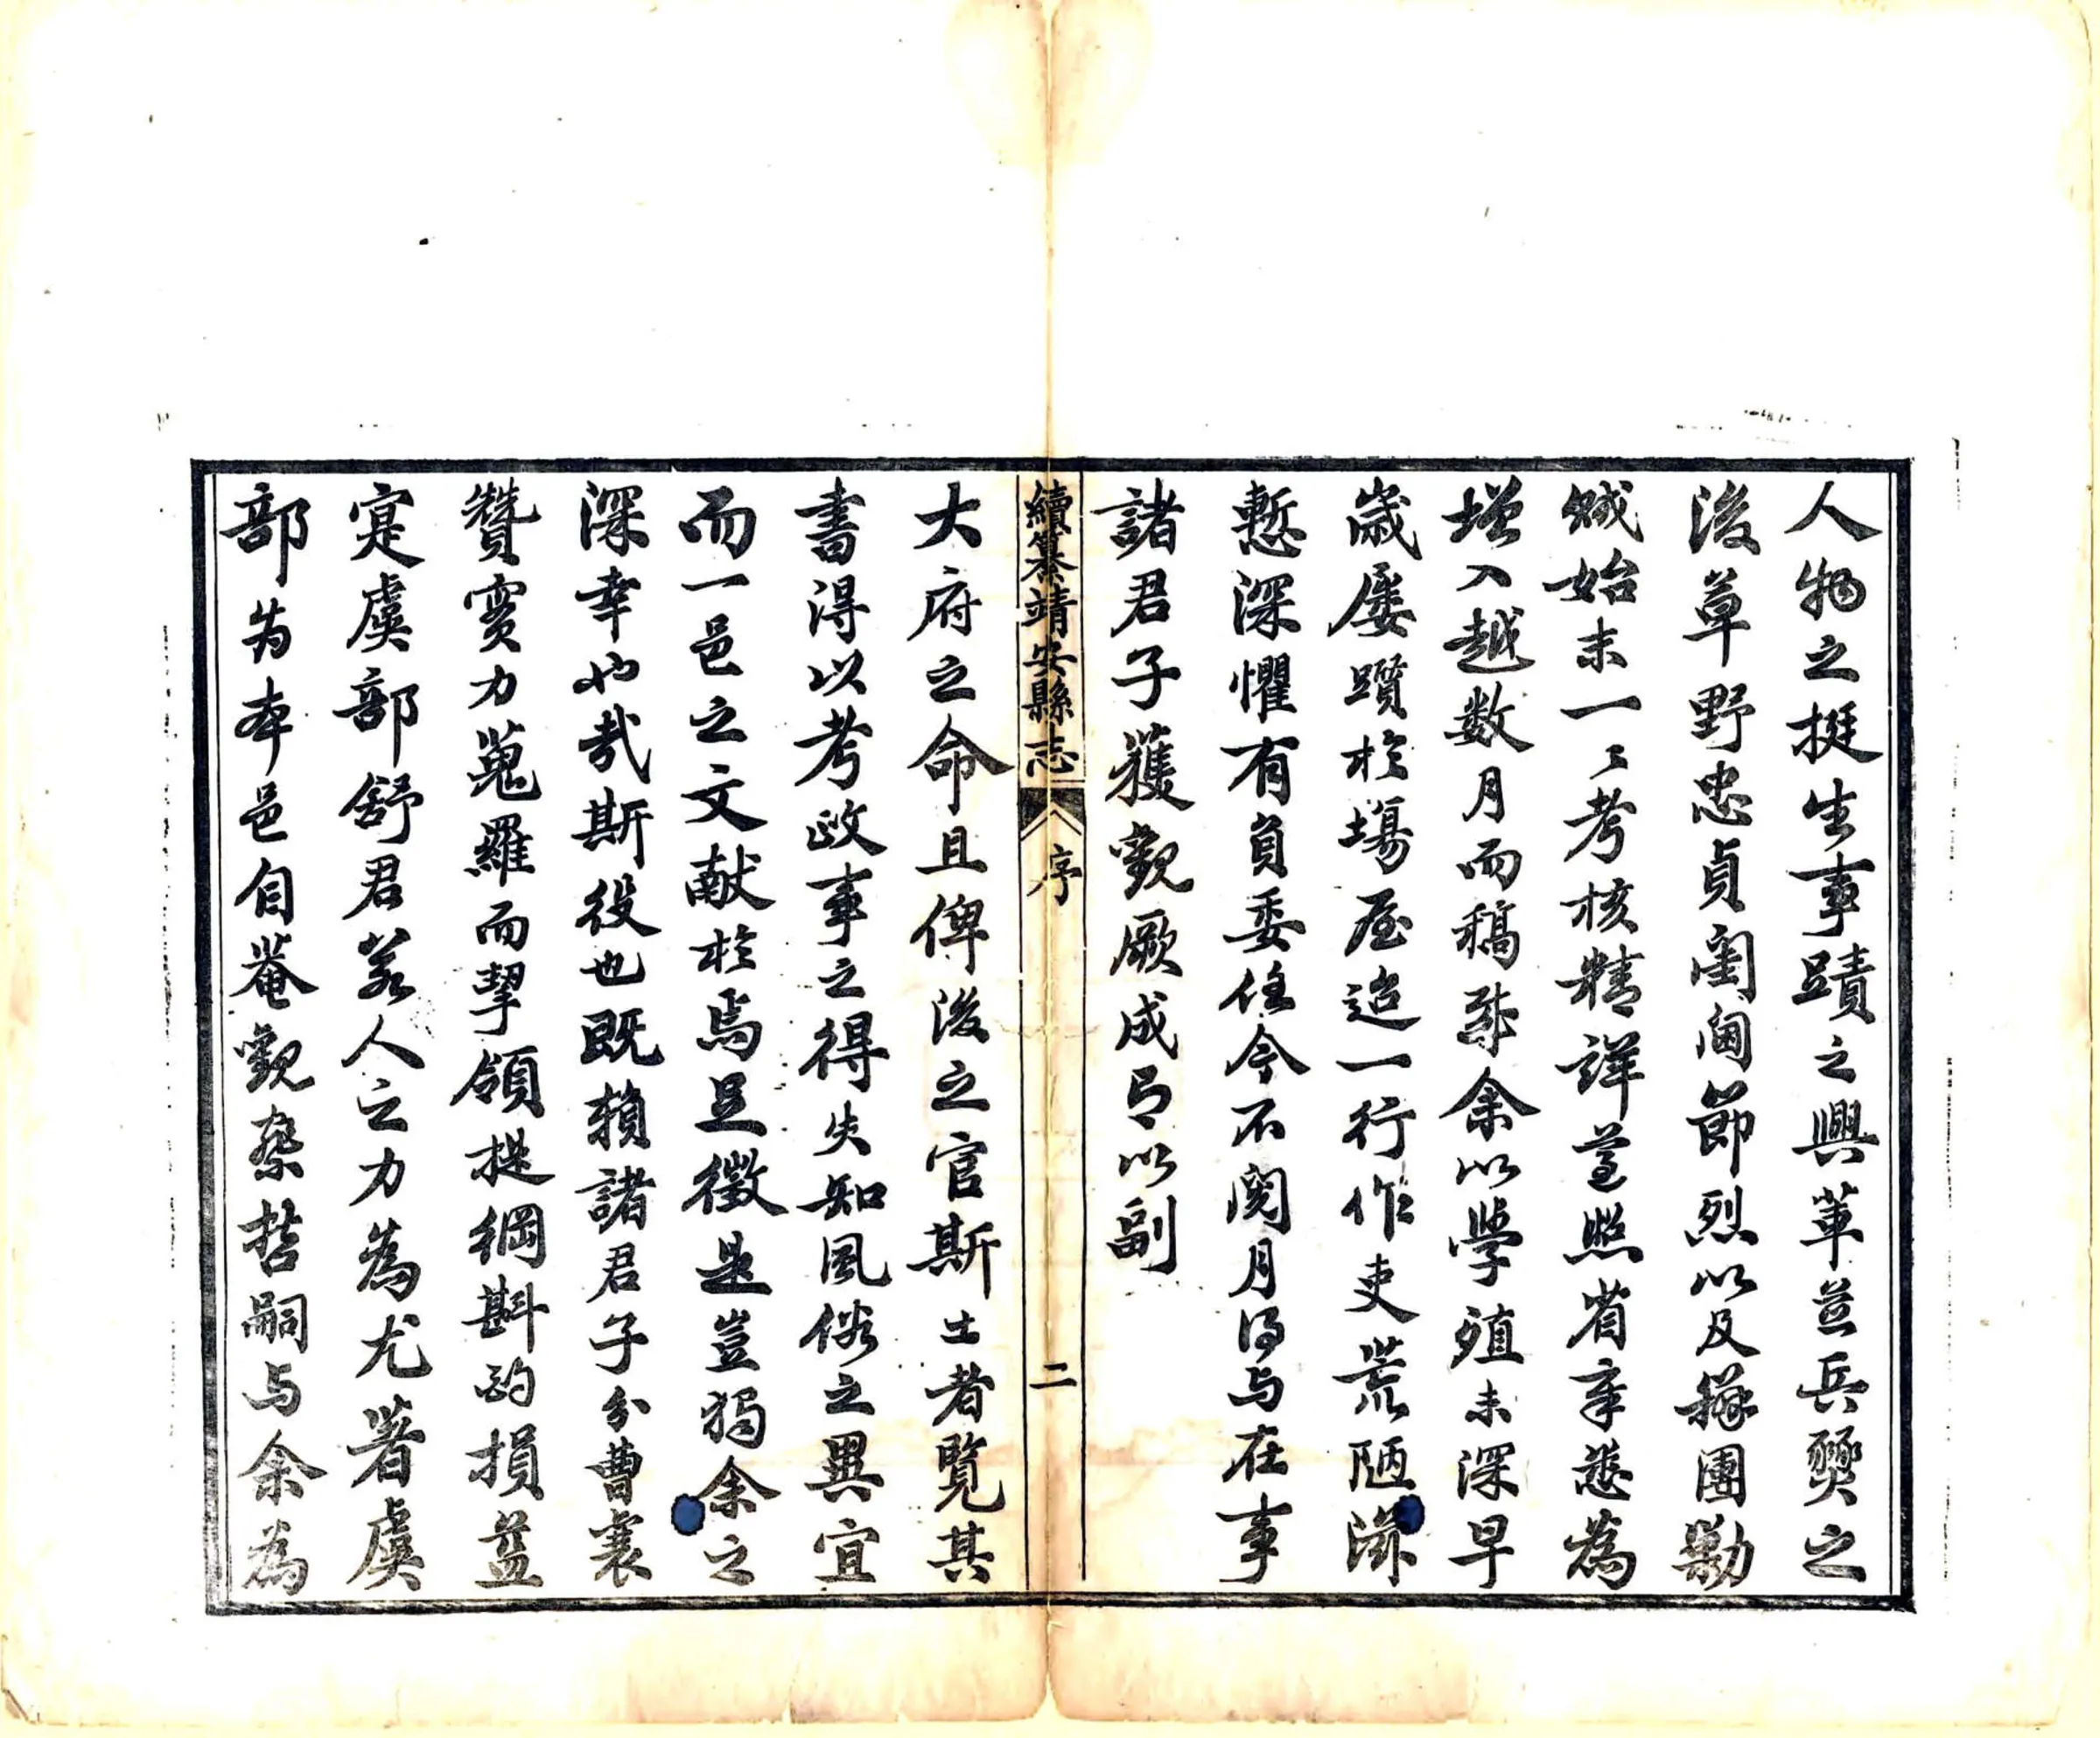 人物之挺生事蹟之興革並兵燹之
後草野忠貞閨閫節烈以及練團勦
賊始末一〻考核精詳並照省章悉為
增入越数月而稿成余以學殖未深早
歲屢躓於場屋迨一行作吏荒陋滋
慙深懼有負委任今不閱月得与在事
諸君子獲觀厥成可以副
續纂靖安縣志
序
二
大府之命且俾後之官斯土者覽其
書得以考政事之得失知風俗之異宜
而一邑之文献於焉足徵是豈獨余之
深幸也哉斯役也既賴諸君子分曹襄
贊實力蒐羅而挈領提綱斟酌損益
寔虞部舒君羲人之力為尤著虞
部為本邑自菴觀察哲嗣与余為